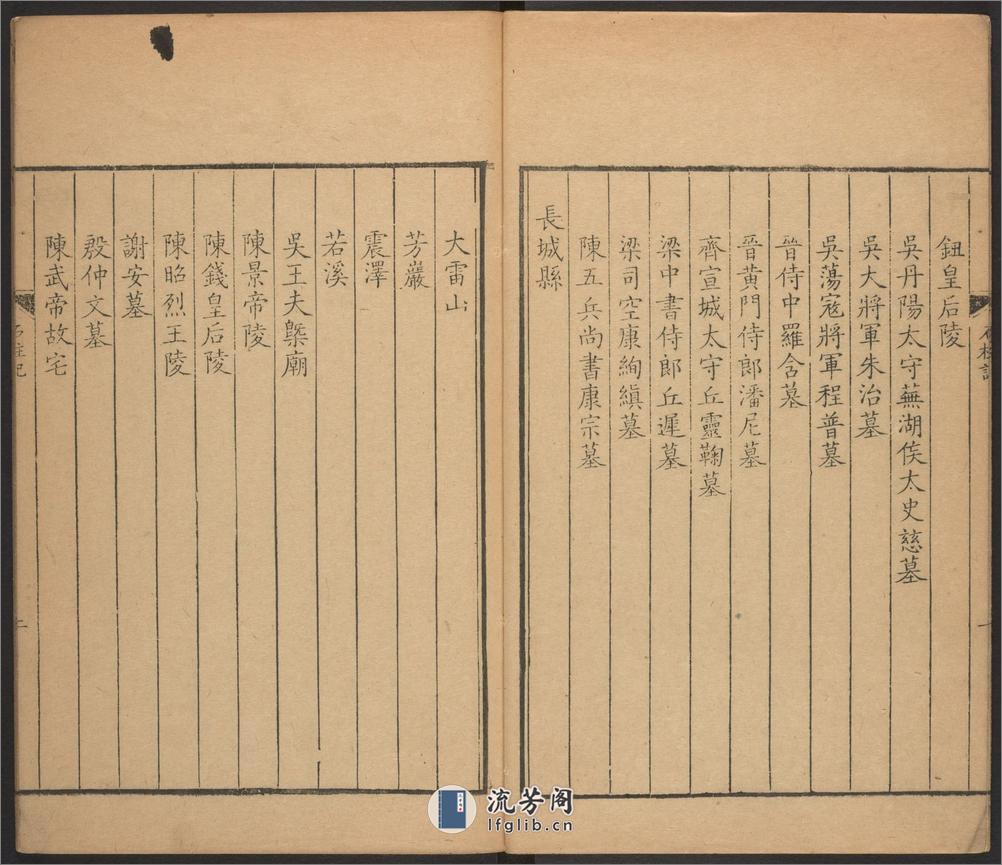 鈕皇后陵
吳丹陽太守蕪湖侯太史慈墓
吳大將軍朱治墓
吳蕩寇將軍程普墓
晉侍中羅含墓
晉黃門侍郎潘尼墓
齊宣城太守丘靈鞠墓
梁中書侍郎丘遲墓
梁司空康絢縝墓
陳五兵尚書康宗墓
長城縣
大雷山
芳巖
震澤
若溪
吳王夫槩廟
陳景帝陵
陳錢皇后陵
陳昭烈王陵
謝安墓
殷仲文墓
陳武帝故宅
石柱記
二
流芳阁
lfglib.cn